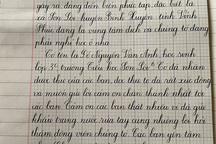 gây ra đang diễn biến phức tạp, đặc biệt là
xã Sơn Lôi, huyện Bình Xuyên, tỉnh Vĩnh
Phúc đang là vùng tâm dịch và chúng tớ đang
phải nghỉ học ở nhà.
Tớ tên là Lê Nguyễn Vân Anh, học sinh
lớp 3 trường Tiểu học Sơn Lôi Tớ đã nhận
được thư của các bạn, đọc thư tớ đã rất xúc động
và muốn gửi lời cảm ơn chân thành nhất tới
các bạn. Cảm ơn các bạn thật nhiều vì đã gửi
khẩu trang, nước rửa tay cùng những lời hỏi
thăm động viên chúng tớ. Các bạn yên tâm